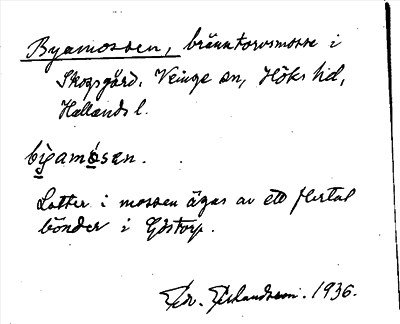 Byamossen, bränntorvsmosse i
Skogsgård, Veinge sn, Höks hd,
Hallands l.
byamosen.
Lotter i mossen ägas av ett flertal
bönder i Göstorp.
1936.